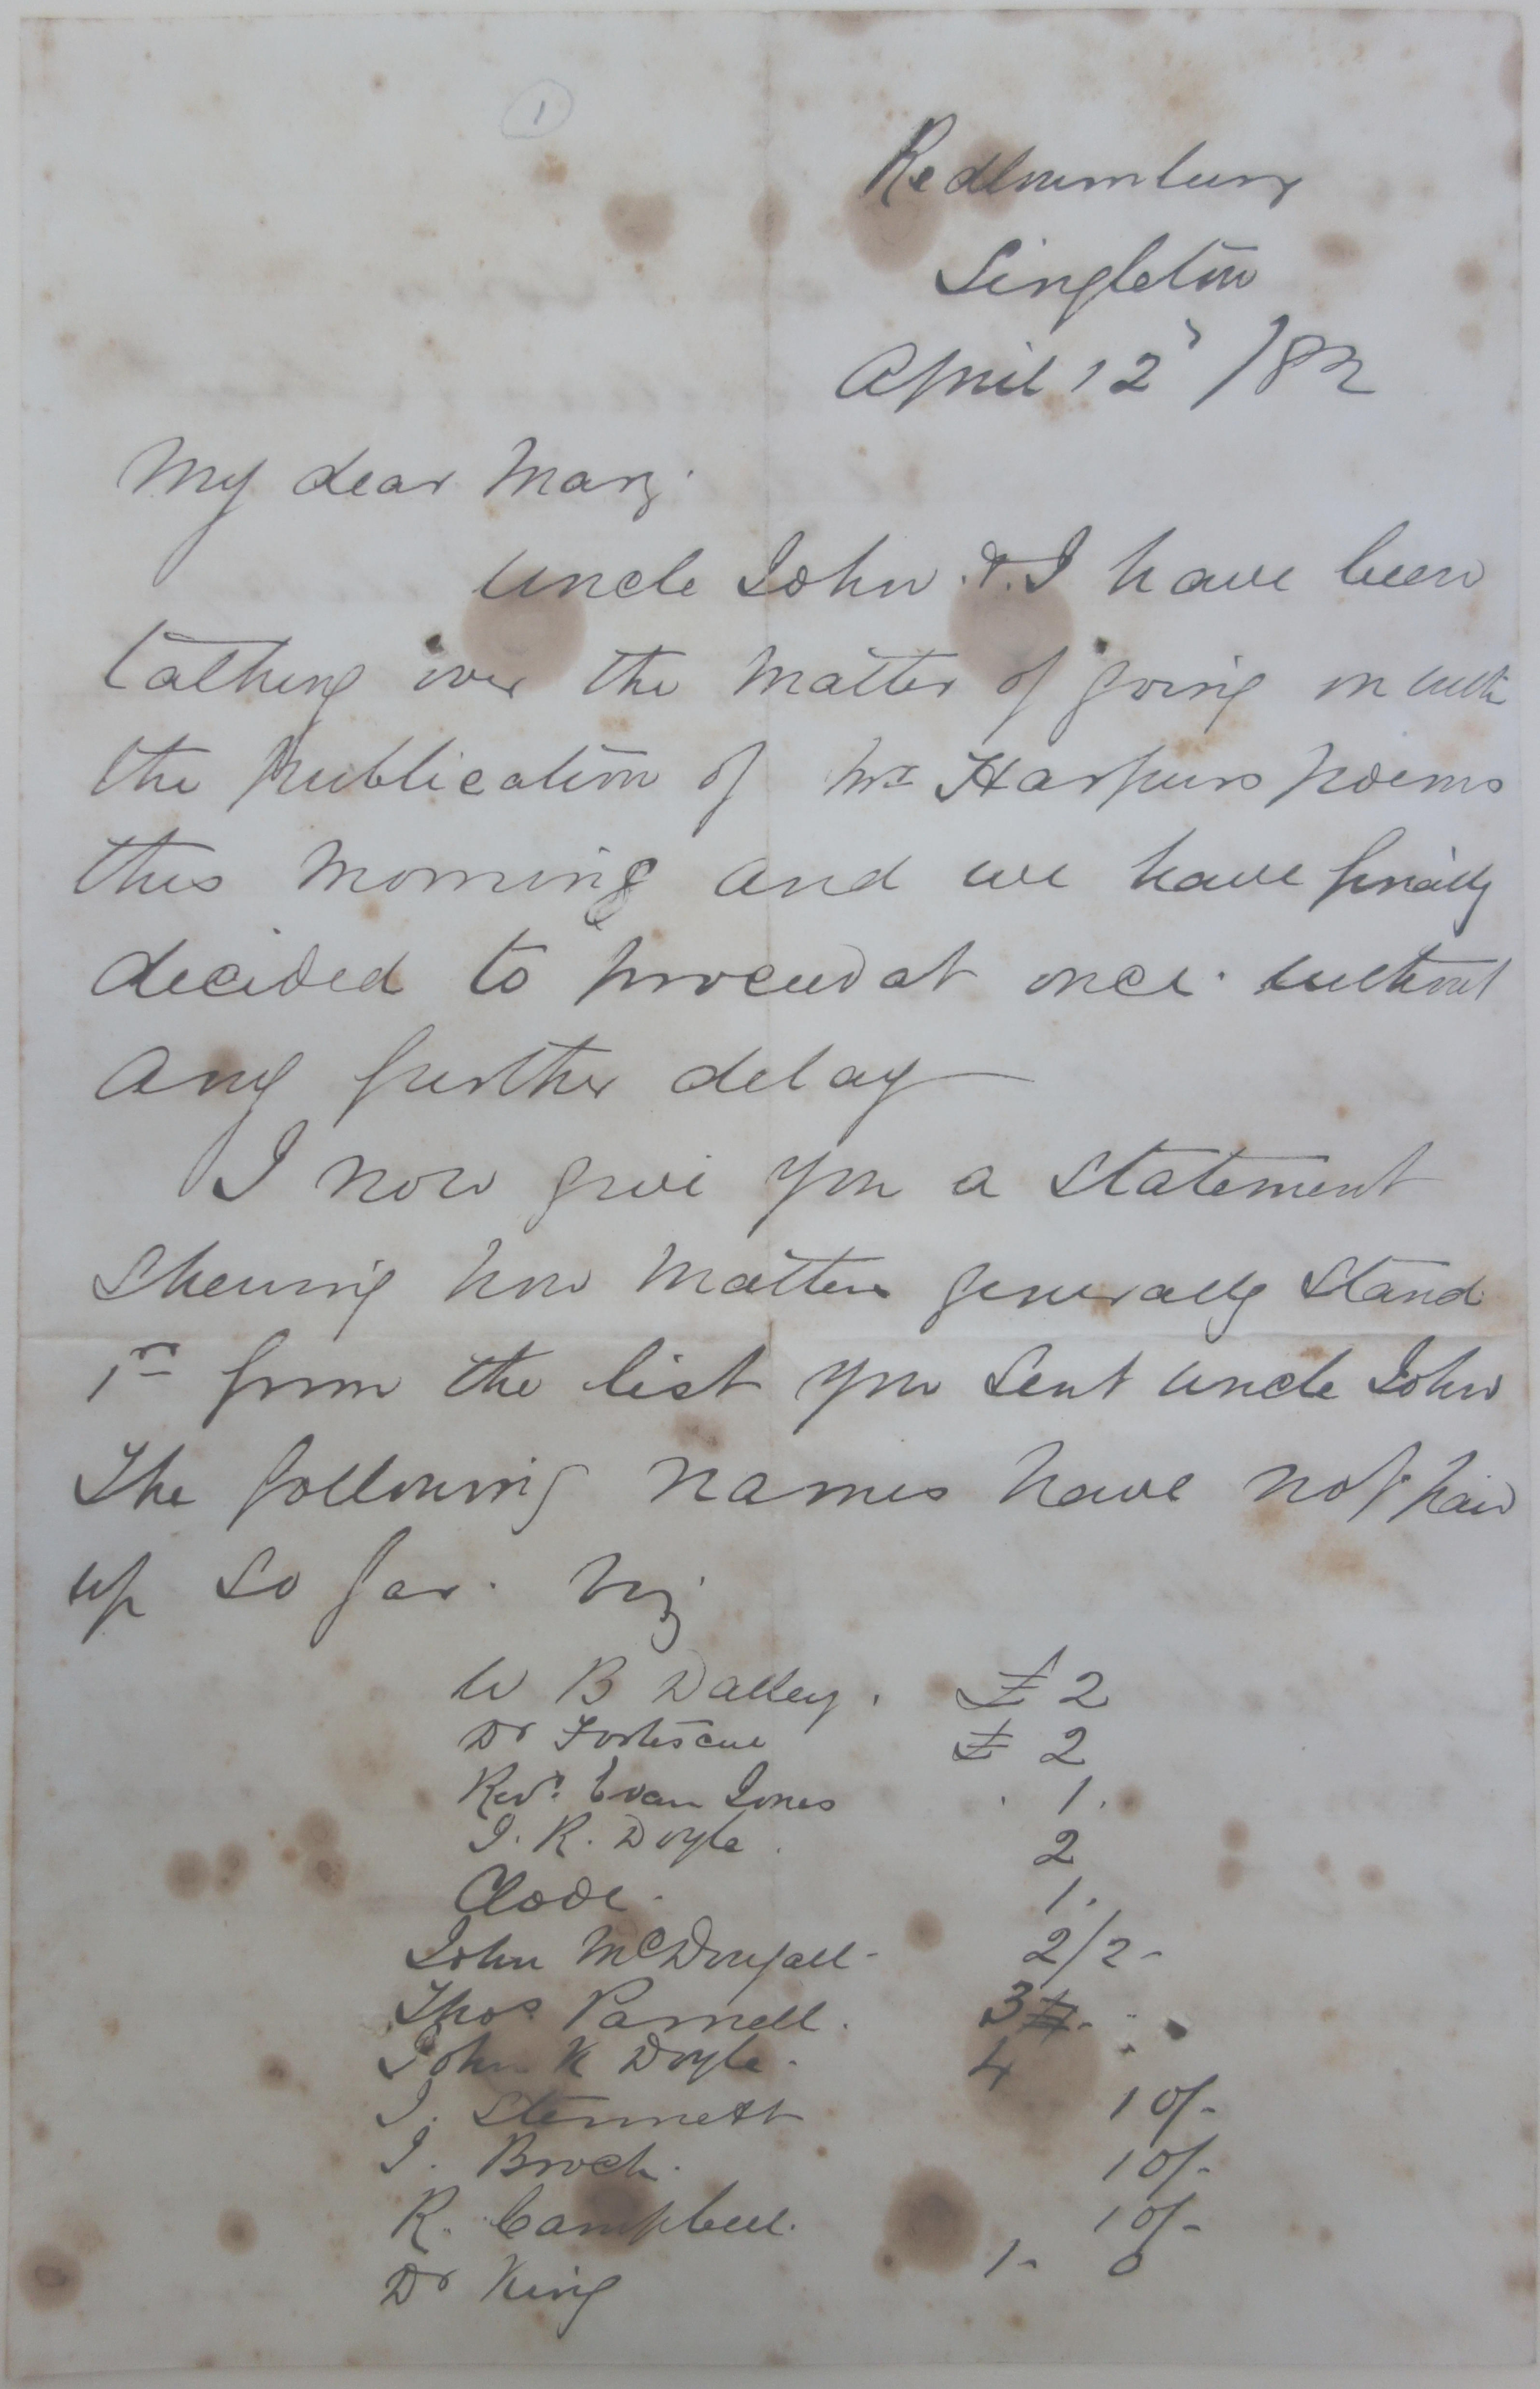 1
Redbournbury
Singleton
April 12 /82
My dear Mary.
Uncle John & I have been
talking over the matter of going on with
the publication of Mrs Harpurs poems
this morning and we have finally
decided to proceed at once without
any further delay
I now give you a statement
shewing how matters generally stand
1st from the list you sent uncle John
The following names have not paid
up so far. viz
W B Dalley. £2
Dr Fortescue £2
Revd. Evan Jones 1.
J. R. Doyle. 2
Clode. 1.
John McDougall - 2/2-
Thos Parnell. 3
John K Doyle. 4
J. Stennett 10/-
J. Broch. 10/-
R. Campbell. 10/-
Dr King 1- 0